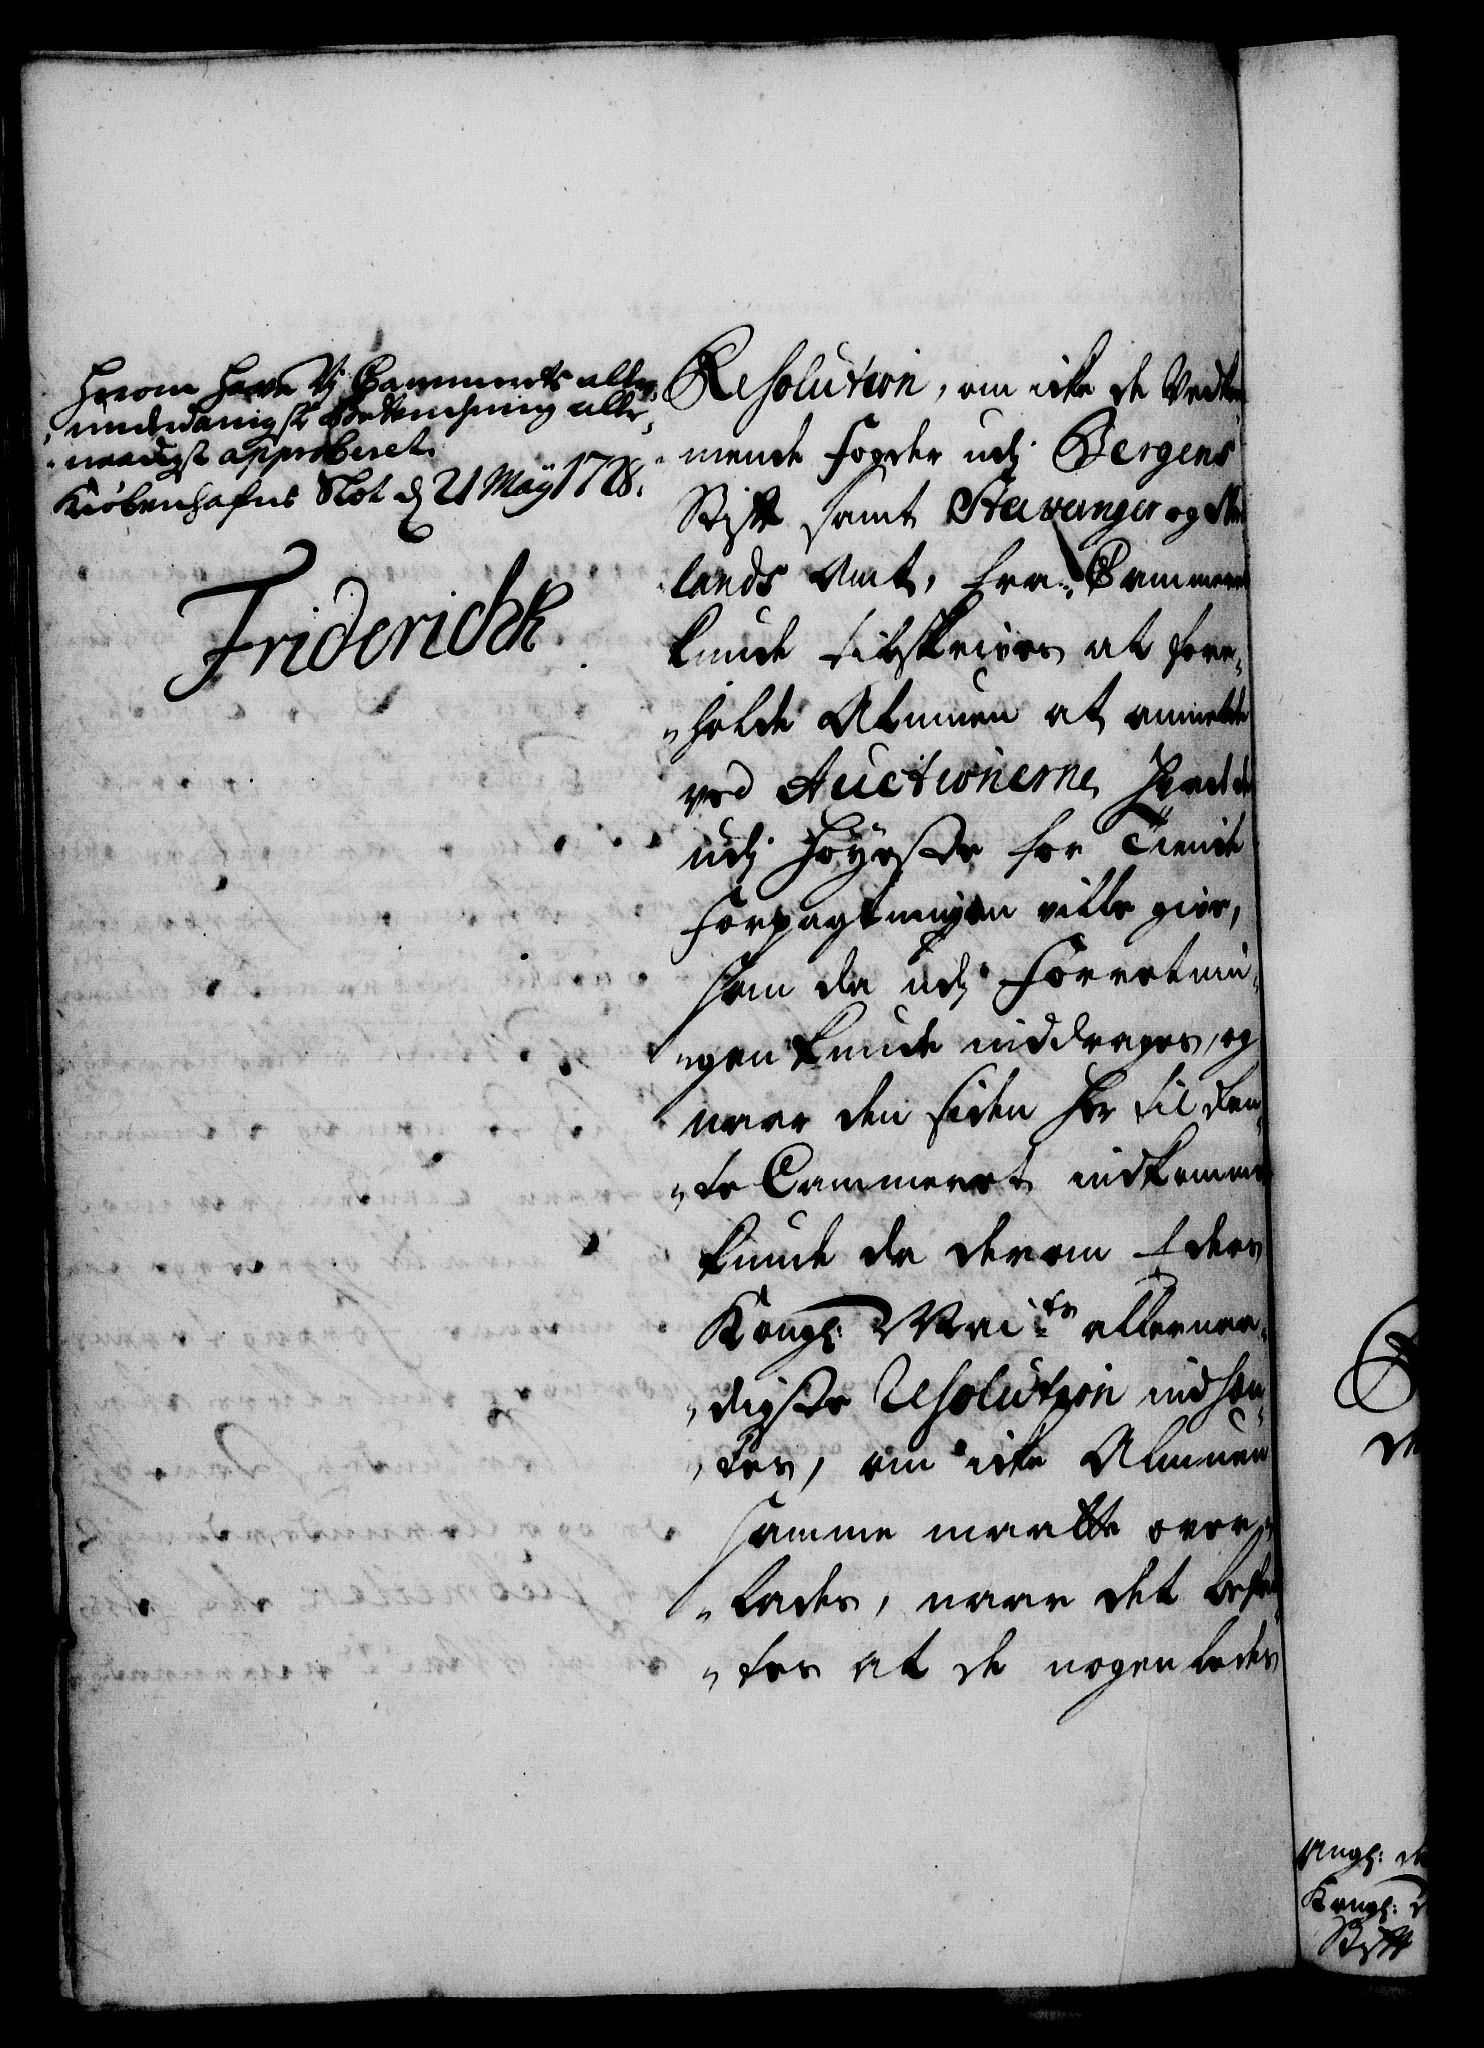 Herom have Vj Cammerets aller¬
underdanigste Betenchning aller¬
naadigst approberet.
Kiøbenhafns Slot d 21 May 1728.
Friderich R
Resolution, om icke de Vedkom¬
mende Fogder udj Bergens
Stift samt Stavanger og
lands Amt, fra Cammeret
kunde tilskrives at fore¬
holde Almuen at anmelde
ved Auctionerne, hvad de
udj Høyeste for Tiende
Forpagtningen ville give,
som da udj Forretnin¬
gen kunde inddrages, og
naar den siden her til Ren¬
te Cammeret indkommer
kunde da derom Eders
Kongl: Maits allernaa¬
digste Resolution indhen¬
tes, om icke Almuen
samme maatte over¬
lades, naar det befin¬
des at de nogenledes
Kongl:
Stift